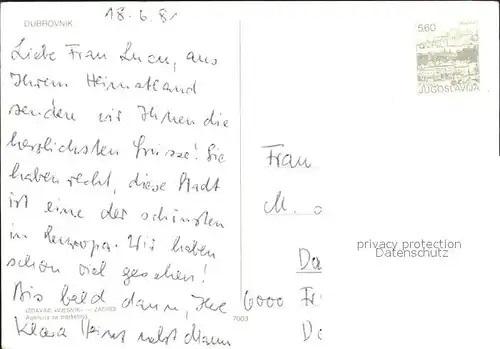 DUBROVNIK
18.6.81
5.60
JUGOSLAVIJA
Liebe Frau Lucu, aus
Ihrem Heimatland
senden wir Ihnen die
herzlichsten Grüsse! Sie
haben recht, diese Stadt
ist eine der schönsten
in Europa. Wir haben
schon viel gesehen!
Bis bald dann, Ihre
Klara
Frau
M.
Da
6000 Fr
De
privacy protection
Datenschutz
IZDAVAČ »VJESNIK« — ZAGREB
Agencija za marketing
7003